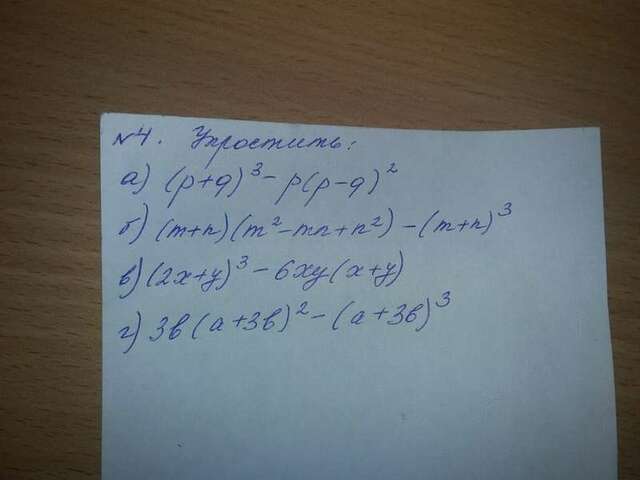 №4. Упростить:
а) (p+q)³ - p(p-q)²
б) (m+n)(m²-mn+n²) - (m+n)³
в) (2x+y)³ - 6xy(x+y)
г) 3в(а+3в)² - (а+3в)³